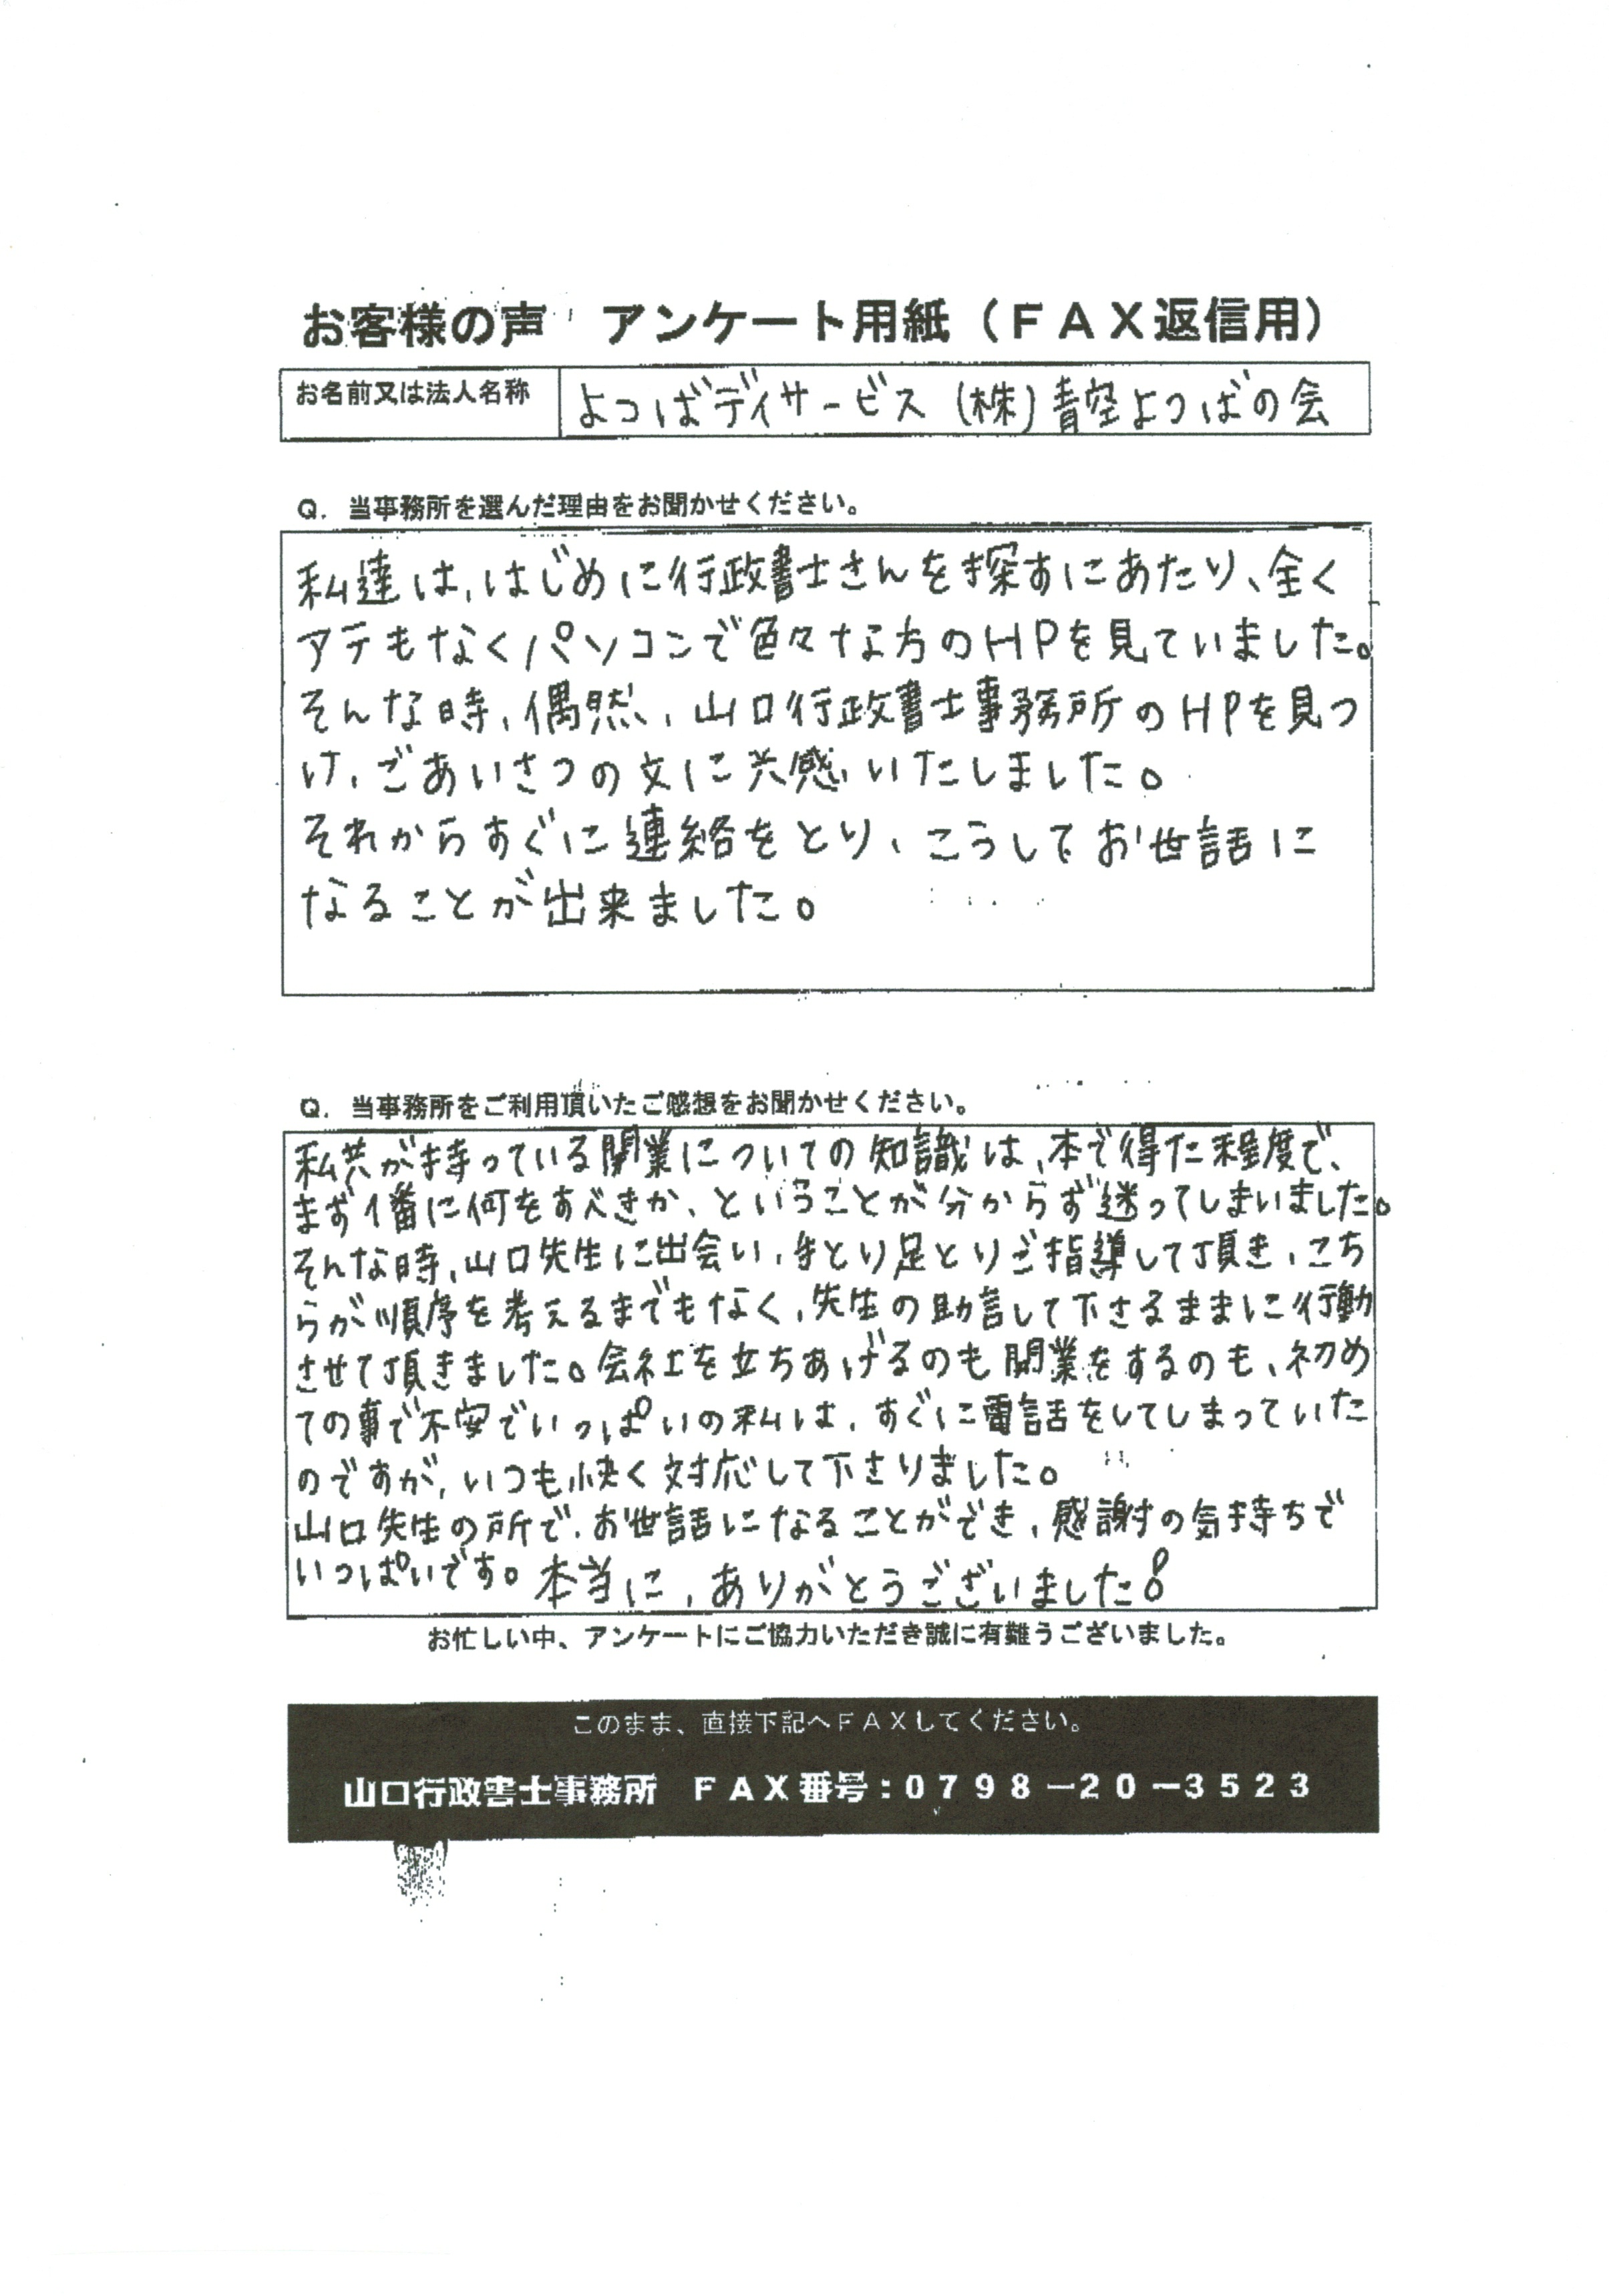 お客様の声　アンケート用紙（ＦＡＸ返信用）
お名前又は法人名称
よつばデイサービス (株)青空よつばの会
Q. 当事務所を選んだ理由をお聞かせください。
私達は、はじめに行政書士さんを探すにあたり、全く
アテもなくパソコンで色々な方のHPを見ていました。
そんな時、偶然、山口行政書士事務所のHPを見つ
け、ごあいさつの文に共感いたしました。
それからすぐに連絡をとり、こうしてお世話に
なることが出来ました。
Q. 当事務所をご利用頂いたご感想をお聞かせください。
私共が持っている開業についての知識は、本で得た程度で、
まず1番に何をすべきか、ということが分からず迷ってしまいました。
そんな時、山口先生に出会い、手とり足とりご指導して頂き、こち
らが順序を考えるまでもなく、先生の助言して下さるままに行動
させて頂きました。会社を立ちあげるのも開業をするのも、初め
ての事で不安でいっぱいの私は、すぐに電話をしてしまっていた
のですが、いつも快く対応して下さりました。
山口先生の所で、お世話になることができ、感謝の気持ちで
いっぱいです。本当に、ありがとうございました!
お忙しい中、アンケートにご協力いただき誠に有難うございました。
このまま、直接下記へＦＡＸしてください。
山口行政書士事務所　ＦＡＸ番号：０７９８－２０－３５２３